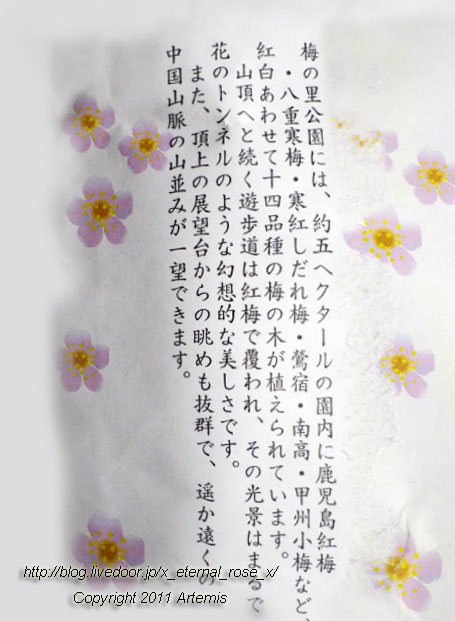 梅の里公園には、約五ヘクタールの園内に鹿児島紅梅
・八重寒梅・寒紅しだれ梅・鶯宿・南高・甲州小梅など、
紅白あわせて十四品種の梅の木が植えられています。
山頂へと続く遊歩道は紅梅で覆われ、その光景はまるで
花のトンネルのような幻想的な美しさです。
また、頂上の展望台からの眺めも抜群で、遥か遠くの
中国山脈の山並みが一望できます。
http://blog.livedoor.jp/x_eternal_rose_x/
Copyright 2011 Artemis